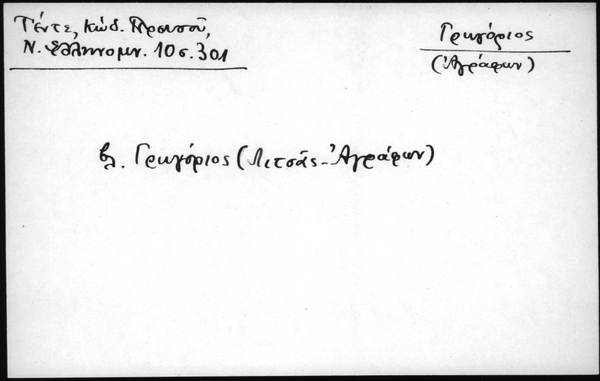 Τέντε, Κώδ. Προυσοῦ,
Ν. Ἑλληνομν. 10 σ. 301
Γρηγόριος
(Ἀγράφων)
βλ. Γρηγόριος (Λιτσᾶς - Ἀγράφων)